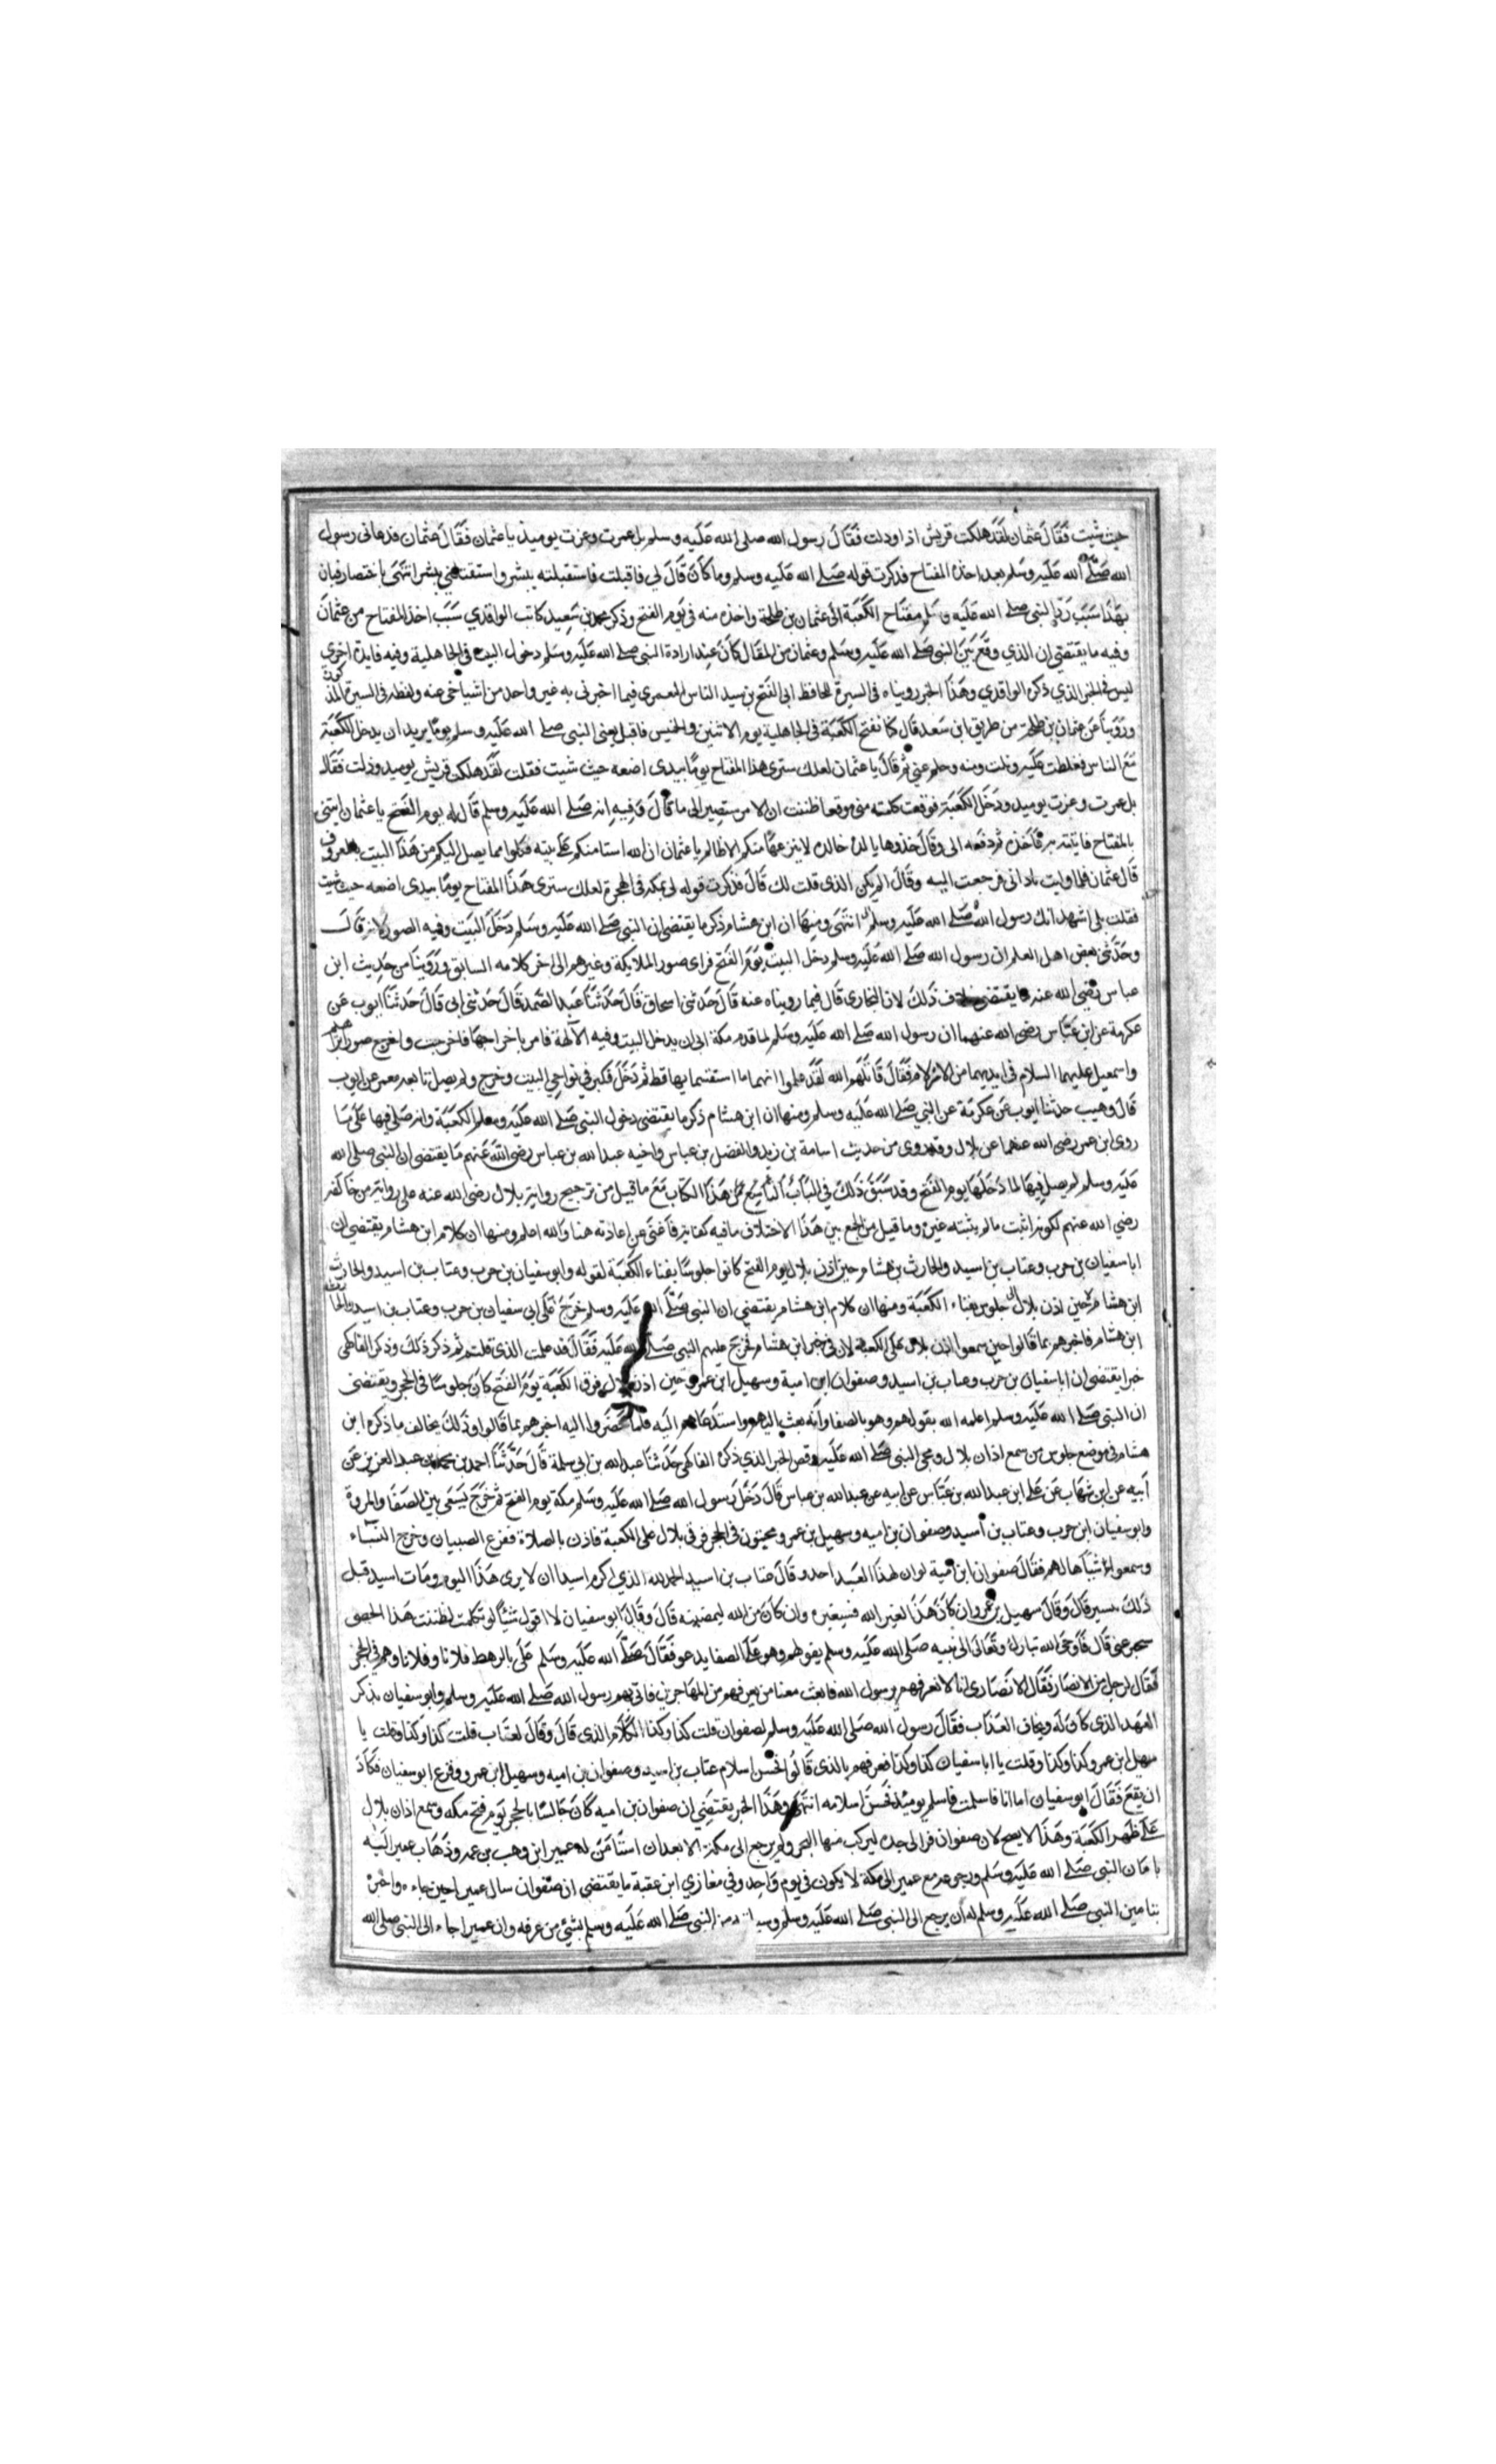 حيث شيت فقال عثمان لقد هلكت قريش اذا وذلت فقال رسول الله صلى الله عليه وسلم بل عمرت وعزت يوميذ يا عثمان فقال عثمان فدعانى رسول
الله صلى الله عليه وسلم بعد اخذه المفتاح فذكرت قوله صلى الله عليه وسلم وما كان قال لي فاقبلت فاستقبلته ببشر واستقبلني ببشر انتهى باختصار فبان
بهذا سبب رد النبي صلى الله عليه وسلم مفتاح الكعبة الى عثمان بن طلحة واخذه منه في يوم الفتح وذكر محمد بن سعيد كاتب الواقدي سبب اخذ المفتاح من عثمان
وفيه ما يقتضي ان الذي وقع بين النبي صلى الله عليه وسلم وعثمان من المقال كان عند ارادة النبي صلى الله عليه وسلم دخول البيت في الجاهلية وفيه فايدة اخري
ليس في الخبر الذي ذكره الواقدي وهذا الخبر رويناه في السيرة للحافظ ابى الفتح بن سيد الناس اليعمري فيما اخبرنى به غير واحد من اشياخي عنه ولفظه في السيرة المذكورة
وروينا عن عثمان بن طلحة من طريق ابن سعد قال كنا نفتح الكعبة في الجاهلية يوم الاثنين والخميس فاقبل يعنى النبي صلى الله عليه وسلم يوما يريد ان يدخل الكعبة
مع الناس فغلظت عليه ونلت منه وحلم عني ثم قال يا عثمان لعلك سترى هذا المفتاح يوما بيدى اضعه حيث شيت فقلت لقد هلكت قريش يوميذ وذلت فقال
بل عمرت وعزت يوميذ ودخل الكعبة فوقعت كلمته منى موقعا ظننت ان الامر ستصير الى ما قال وفيه انه صلى الله عليه وسلم قال له يوم الفتح يا عثمان ايتنى
بالمفتاح فاتيته به فاخذه ثم دفعه الى وقال خذوها يا لده خالده لا ينزعها منكم الا ظالم يا عثمان ان الله استامنكم على بيته فكلوا مما يصل اليكم من هذا البيت بالمعروف
قال عثمان فلما وليت نادانى فرجعت اليه وقال الم يكن الذى قلت لك قال فذكرت قوله لى بمكه قبل الهجرة لعلك سترى هذا المفتاح يوما بيدى اضعه حيث شيت
فقلت بلى اشهد انك رسول الله صلى الله عليه وسلم انتهى ومنها ان ابن هشام ذكر ما يقتضى ان النبي صلى الله عليه وسلم دخل البيت وفيه الصور لانه قال
وحدثني بعض اهل العلم ان رسول الله صلى الله عليه وسلم دخل البيت يوم الفتح فراى صور الملايكة وغيرهم الى اخر كلامه السابق وروينا من حديث ابن
عباس رضى الله عنه ما يقتضى خلاف ذلك لان البخارى قال فيما رويناه عنه قال حدثنى اسحاق قال حدثنا عبد الصمد قال حدثنى ابى قال حدثنا ايوب عن
عكرمة عن ابن عباس رضى الله عنهما ان رسول الله صلى الله عليه وسلم لما قدم مكة ابى ان يدخل البيت وفيه الآلهة فامر باخراجها فاخرجت واخرج صور ابراهيم
واسمعيل عليهما السلام في ايديهما من الازلام فقال قاتلهم الله لقد علموا انهما ما استقسما بها قط ثم دخل فكبر في نواحي البيت وخرج ولم يصل تابعه معمر عن ايوب
قال وهيب حدثنا ايوب عن عكرمة عن النبي صلى الله عليه وسلم ومنها ان ابن هشام ذكر ما يقتضى دخول النبي صلى الله عليه وسلم الكعبة وانه صلى فيها على ما
روى ابن عمر رضى الله عنهما عن بلال وقد روى من حديث اسامة بن زيد والفضل بن عباس واخيه عبد الله بن عباس رضى الله عنهم ما يقتضى ان النبي صلى الله
عليه وسلم لم يصل فيها لما دخلها يوم الفتح وقد سبق ذلك في الباب التاسع من هذا الكتاب مع ما قيل من ترجيح رواية بلال رضى الله عنه على رواية من خالفه
رضي الله عنهم لكونه اثبت ما لم يثبته غيره وما قيل من الجمع بين هذا الاختلاف ما فيه كفاية فاغنى عن اعادته هنا والله اعلم ومنها ان كلام ابن هشام يقتضي ان
ابا سفيان بن حرب وعتاب بن اسيد والحارث بن هشام حين اذن بلال يوم الفتح كانوا جلوسا بفناء الكعبة لقوله وابو سفيان بن حرب وعتاب بن اسيد والحارث
ابن هشام حين اذن بلال جلوس بفناء الكعبة ومنها ان كلام ابن هشام يقتضي ان النبي صلى الله عليه وسلم خرج على ابى سفيان بن حرب وعتاب بن اسيد والحارث
ابن هشام فاخبرهم بما قالوا حين سمعوا اذان بلال على الكعبة لان في خبر ابن هشام فخرج عليهم النبي صلى الله عليه فقال قد علمت الذى قلتم ثم ذكر ذلك وذكر الفاكهى
خبرا يقتضى ان ابا سفيان بن حرب وعتاب بن اسيد وصفوان ابن امية وسهيل ابن عمرو حين اذن بلال فوق الكعبة يوم الفتح كان جلوسا في الحجر ويقتضى
ان النبي صلى الله عليه وسلم اعلمه الله بقولهم وهو بالصفا وانه بعث اليهم واستدعاهم اليه فلما حضروا اليه اخبرهم بما قالوا وذلك يخالف ما ذكره ابن
هشام في موضع جلوس من سمع اذان بلال ومجى النبي صلى الله عليه وقص الخبر الذي ذكره الفاكهي حدثنا عبد الله بن ابى سلمة قال حدثنا احمد بن محمد بن عبد العزيز عن
أبيه عن ابن شهاب عن على ابن عبد الله بن عباس عن ابيه عن عبد الله بن عباس قال دخل رسول الله صلى الله عليه وسلم مكة يوم الفتح ثم خرج يسعى بين الصفا والمروة
وابو سفيان ابن حرب وعتاب بن أسيد وصفوان بن اميه وسهيل بن عمرو ومحتبون في الحجر فرقى بلال على الكعبة فاذن بالصلاة ففزع الصبيان وخرج النساء
وسمعوا فقال صفوان ابن امية لو ان لهذا العبد احد وقال عتاب بن اسيد الحمد لله الذي اكرم اسيدا ان لا يرى هذا اليوم ومات اسيد قبل
ذلك بيسير قال وقال سهيل بن عمرو ان كان هذا لغير الله فسيغيره وان كان من الله ليمضينه قال وقال ابو سفيان لا اقول شيئا لو تكلمت لظننت هذا الحصى
سيخبر عنى قال فاوحى الله تبارك وتعالى الى نبيه صلى الله عليه وسلم بقولهم وهو على الصفا يدعو فقال صلى الله عليه وسلم على بالرهط فلانا وفلانا وهم في الحجر
فقال لرجل من الانصار فقال الانصارى انا لا نعرفهم يا رسول الله فابعث معنا من يعرفهم من المهاجرين فاتى بهم رسول الله صلى الله عليه وسلم وابو سفيان يذكر
العهد الذى كان له ويخاف العذاب فقال رسول الله صلى الله عليه وسلم لصفوان قلت كذا وكذا الكلام الذى قال وقال لعتاب قلت كذا وكذا وقلت يا
سهيل ابن عمرو كذا وكذا وقلت يا ابا سفيان كذا وكذا فعرفهم بالذى قالوا فحسن اسلام عتاب بن اسيد وصفوان بن اميه وسهيل ابن عمرو وفزع ابو سفيان فكاد
ان يقع فقال ابو سفيان اما انا فاسلمت فاسلم يوميذ فحسن اسلامه انتهى وهذا الخبر يقتضي ان صفوان بن اميه كان جالسا بالحجر يوم فتح مكه وسمع اذان بلال
على ظهر الكعبة وهذا لا يصح لان صفوان فر الى جده ليركب منها البحر ولم يرجع الى مكة الا بعد ان استامن له عمير ابن وهب بن عمرو وذهاب عمير اليه
بامان النبي صلى الله عليه وسلم ورجوعه مع عمير الى مكة لا يكون في يوم واحد وفي مغازي ابن عقبة ما يقتضي ان صفوان سال عميرا حين جاءه واخبره
بتامين النبي صلى الله عليه وسلم له ان يرجع الى النبي صلى الله عليه وسلم النبي صلى الله عليه وسلم بشئ من عرفه وان عميرا جاء الى النبي صلى الله